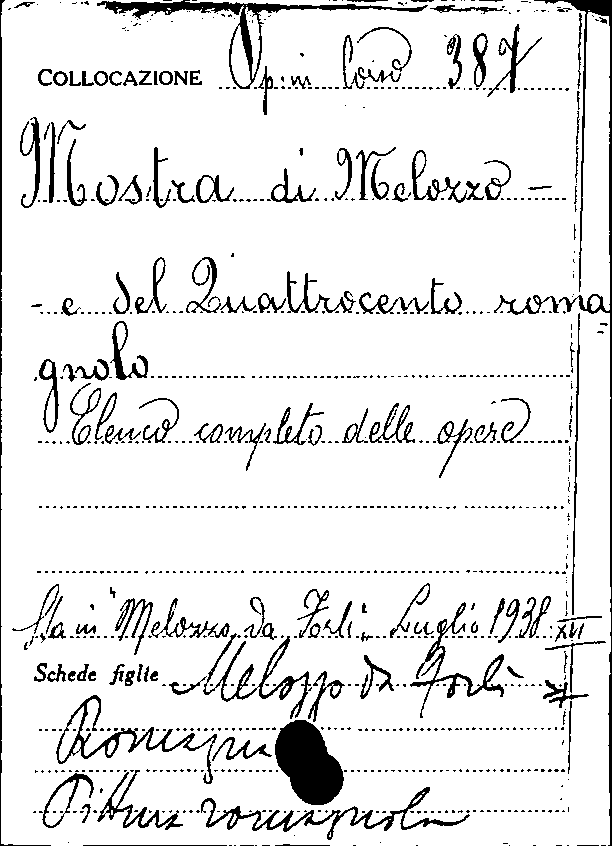 COLLOCAZIONE Op. in loco 387
Mostra di Melozzo -
- e del Quattrocento roma
gnolo
Elenco completo delle opere
Sta in "Melozzo da Forlì" Luglio 1938 XVI
Schede figlie Melozzo da Forlì
Romagna
Pittura romagnola